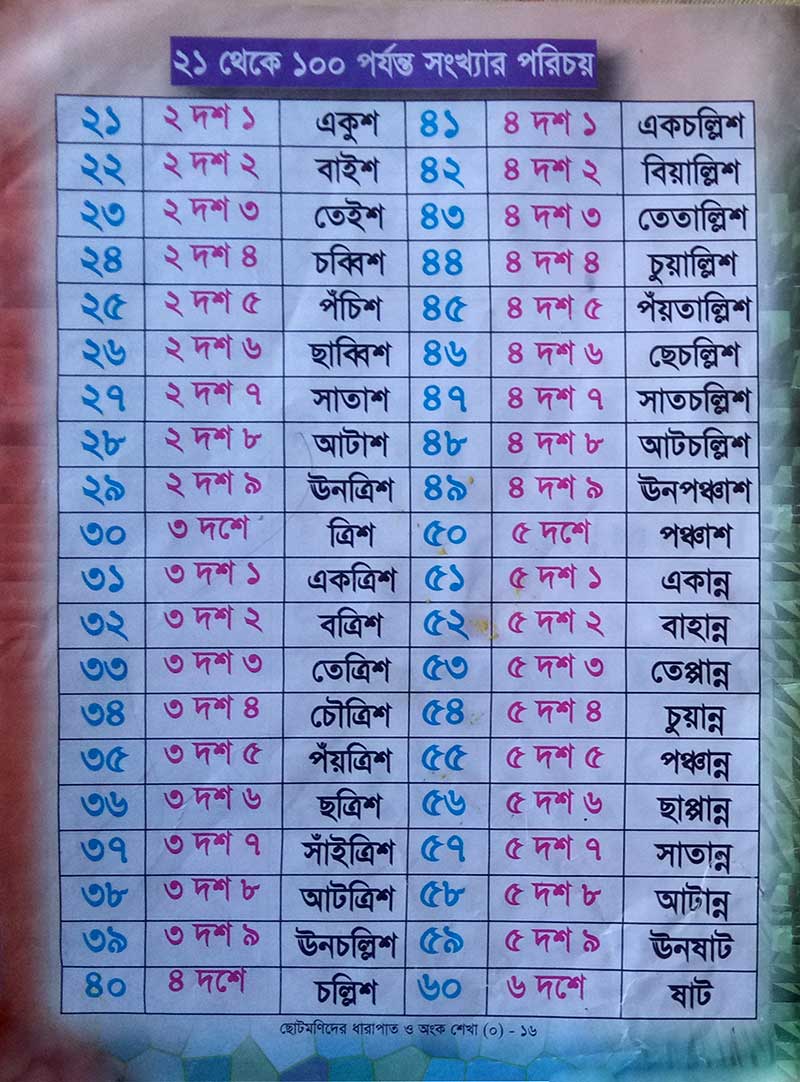 ২১ থেকে ১০০ পর্যন্ত সংখ্যার পরিচয়
২১ ২ দশ ১ একুশ ৪১ ৪ দশ ১ একচল্লিশ
২২ ২ দশ ২ বাইশ ৪২ ৪ দশ ২ বিয়াল্লিশ
২৩ ২ দশ ৩ তেইশ ৪৩ ৪ দশ ৩ তেতাল্লিশ
২৪ ২ দশ ৪ চব্বিশ ৪৪ ৪ দশ ৪ চুয়াল্লিশ
২৫ ২ দশ ৫ পঁচিশ ৪৫ ৪ দশ ৫ পঁয়তাল্লিশ
২৬ ২ দশ ৬ ছাব্বিশ ৪৬ ৪ দশ ৬ ছেচল্লিশ
২৭ ২ দশ ৭ সাতাশ ৪৭ ৪ দশ ৭ সাতচল্লিশ
২৮ ২ দশ ৮ আটাশ ৪৮ ৪ দশ ৮ আটচল্লিশ
২৯ ২ দশ ৯ ঊনত্রিশ ৪৯ ৪ দশ ৯ ঊনপঞ্চাশ
৩০ ৩ দশে ত্রিশ ৫০ ৫ দশে পঞ্চাশ
৩১ ৩ দশ ১ একত্রিশ ৫১ ৫ দশ ১ একান্ন
৩২ ৩ দশ ২ বত্রিশ ৫২ ৫ দশ ২ বাহান্ন
৩৩ ৩ দশ ৩ তেত্রিশ ৫৩ ৫ দশ ৩ তেপ্পান্ন
৩৪ ৩ দশ ৪ চৌত্রিশ ৫৪ ৫ দশ ৪ চুয়ান্ন
৩৫ ৩ দশ ৫ পঁয়ত্রিশ ৫৫ ৫ দশ ৫ পঞ্চান্ন
৩৬ ৩ দশ ৬ ছত্রিশ ৫৬ ৫ দশ ৬ ছাপ্পান্ন
৩৭ ৩ দশ ৭ সাঁইত্রিশ ৫৭ ৫ দশ ৭ সাতান্ন
৩৮ ৩ দশ ৮ আটত্রিশ ৫৮ ৫ দশ ৮ আটান্ন
৩৯ ৩ দশ ৯ ঊনচল্লিশ ৫৯ ৫ দশ ৯ ঊনষাট
৪০ ৪ দশে চল্লিশ ৬০ ৬ দশে ষাট
ছোটমণিদের ধারাপাত ও অংক শেখা (০) - ১৬